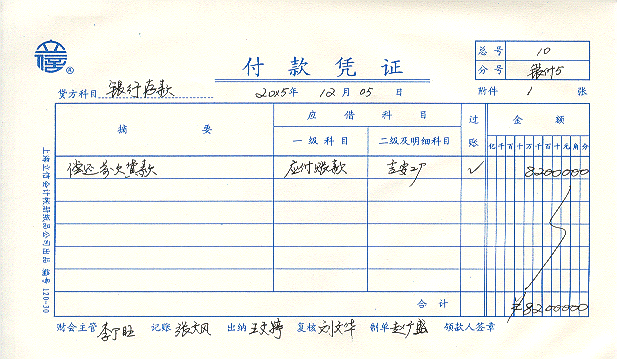 总号 10
付款凭证
分号 银付5
贷方科目 银行存款 2015年 12月 05日 附件 1 张
摘要 应借科目 过账 金额
一级科目 二级及明细科目 亿千百十万千百十元角分
偿还前欠货款 应付账款 吉安厂 ✓ 8200000
合计 ¥8200000
财会主管 李丁旺 记账 张大风 出纳 王文婷 复核 刘文华 制单 赵广盛 领款人签章
上海立信会计帐册纸品公司出品 编号 120-30